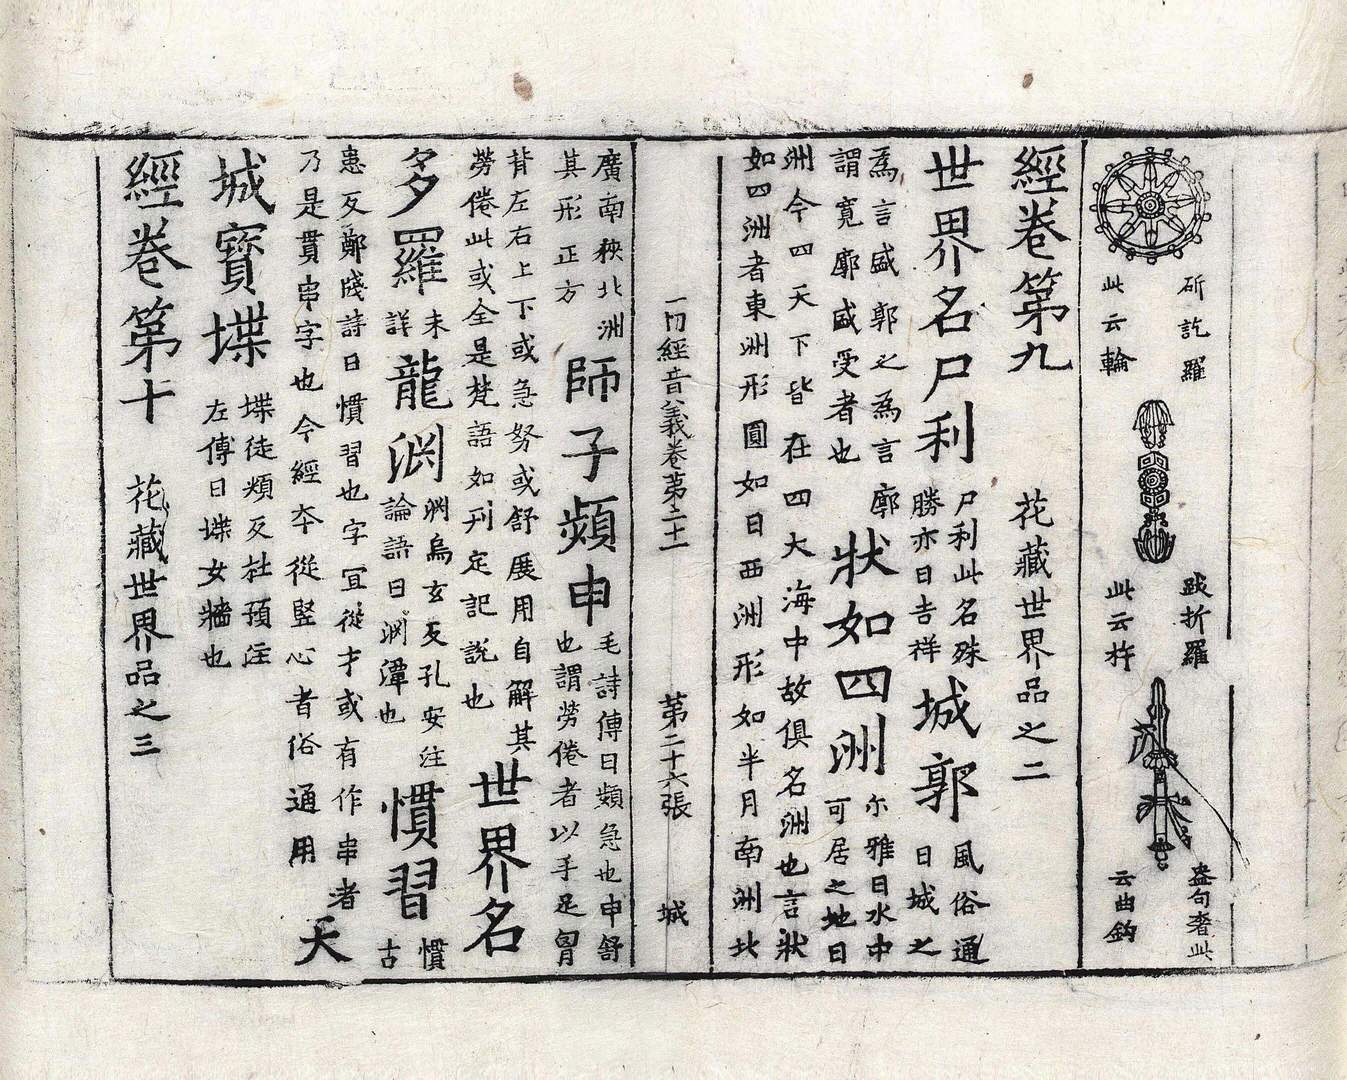 斫訖羅
此云輪
跋折羅
此云杵
盎句奢此
云曲鈎
經卷第九 花藏世界品之二
世界名尸利 尸利此名殊勝亦曰吉祥 城郭 風俗通曰城之
為言盛郭之為言廓謂寬廓盛受者也 狀如四洲 尒雅曰水中可居之地曰
洲今四天下皆在四大海中故俱名洲也言狀
如四洲者東洲形圓如日西洲形如半月南洲北
一切經音義卷第二十一 第二十六張 城
廣南狹北洲其形正方 師子頻申 毛詩傳曰頻急也申舒也謂勞倦者以手足胷
背左右上下或急努或舒展用自解其勞倦此或全是梵語如刊定記說也 世界名
多羅 未詳 龍渊 渊烏玄反孔安注論語曰渊潭也 慣習 慣古
患反鄭牋詩曰慣習也字冝從才或有作串者乃是貫串字也今經本從竪心者俗通用 天
城寶堞 堞徒頰反杜預注左傳曰堞女牆也
經卷第十 花藏世界品之三